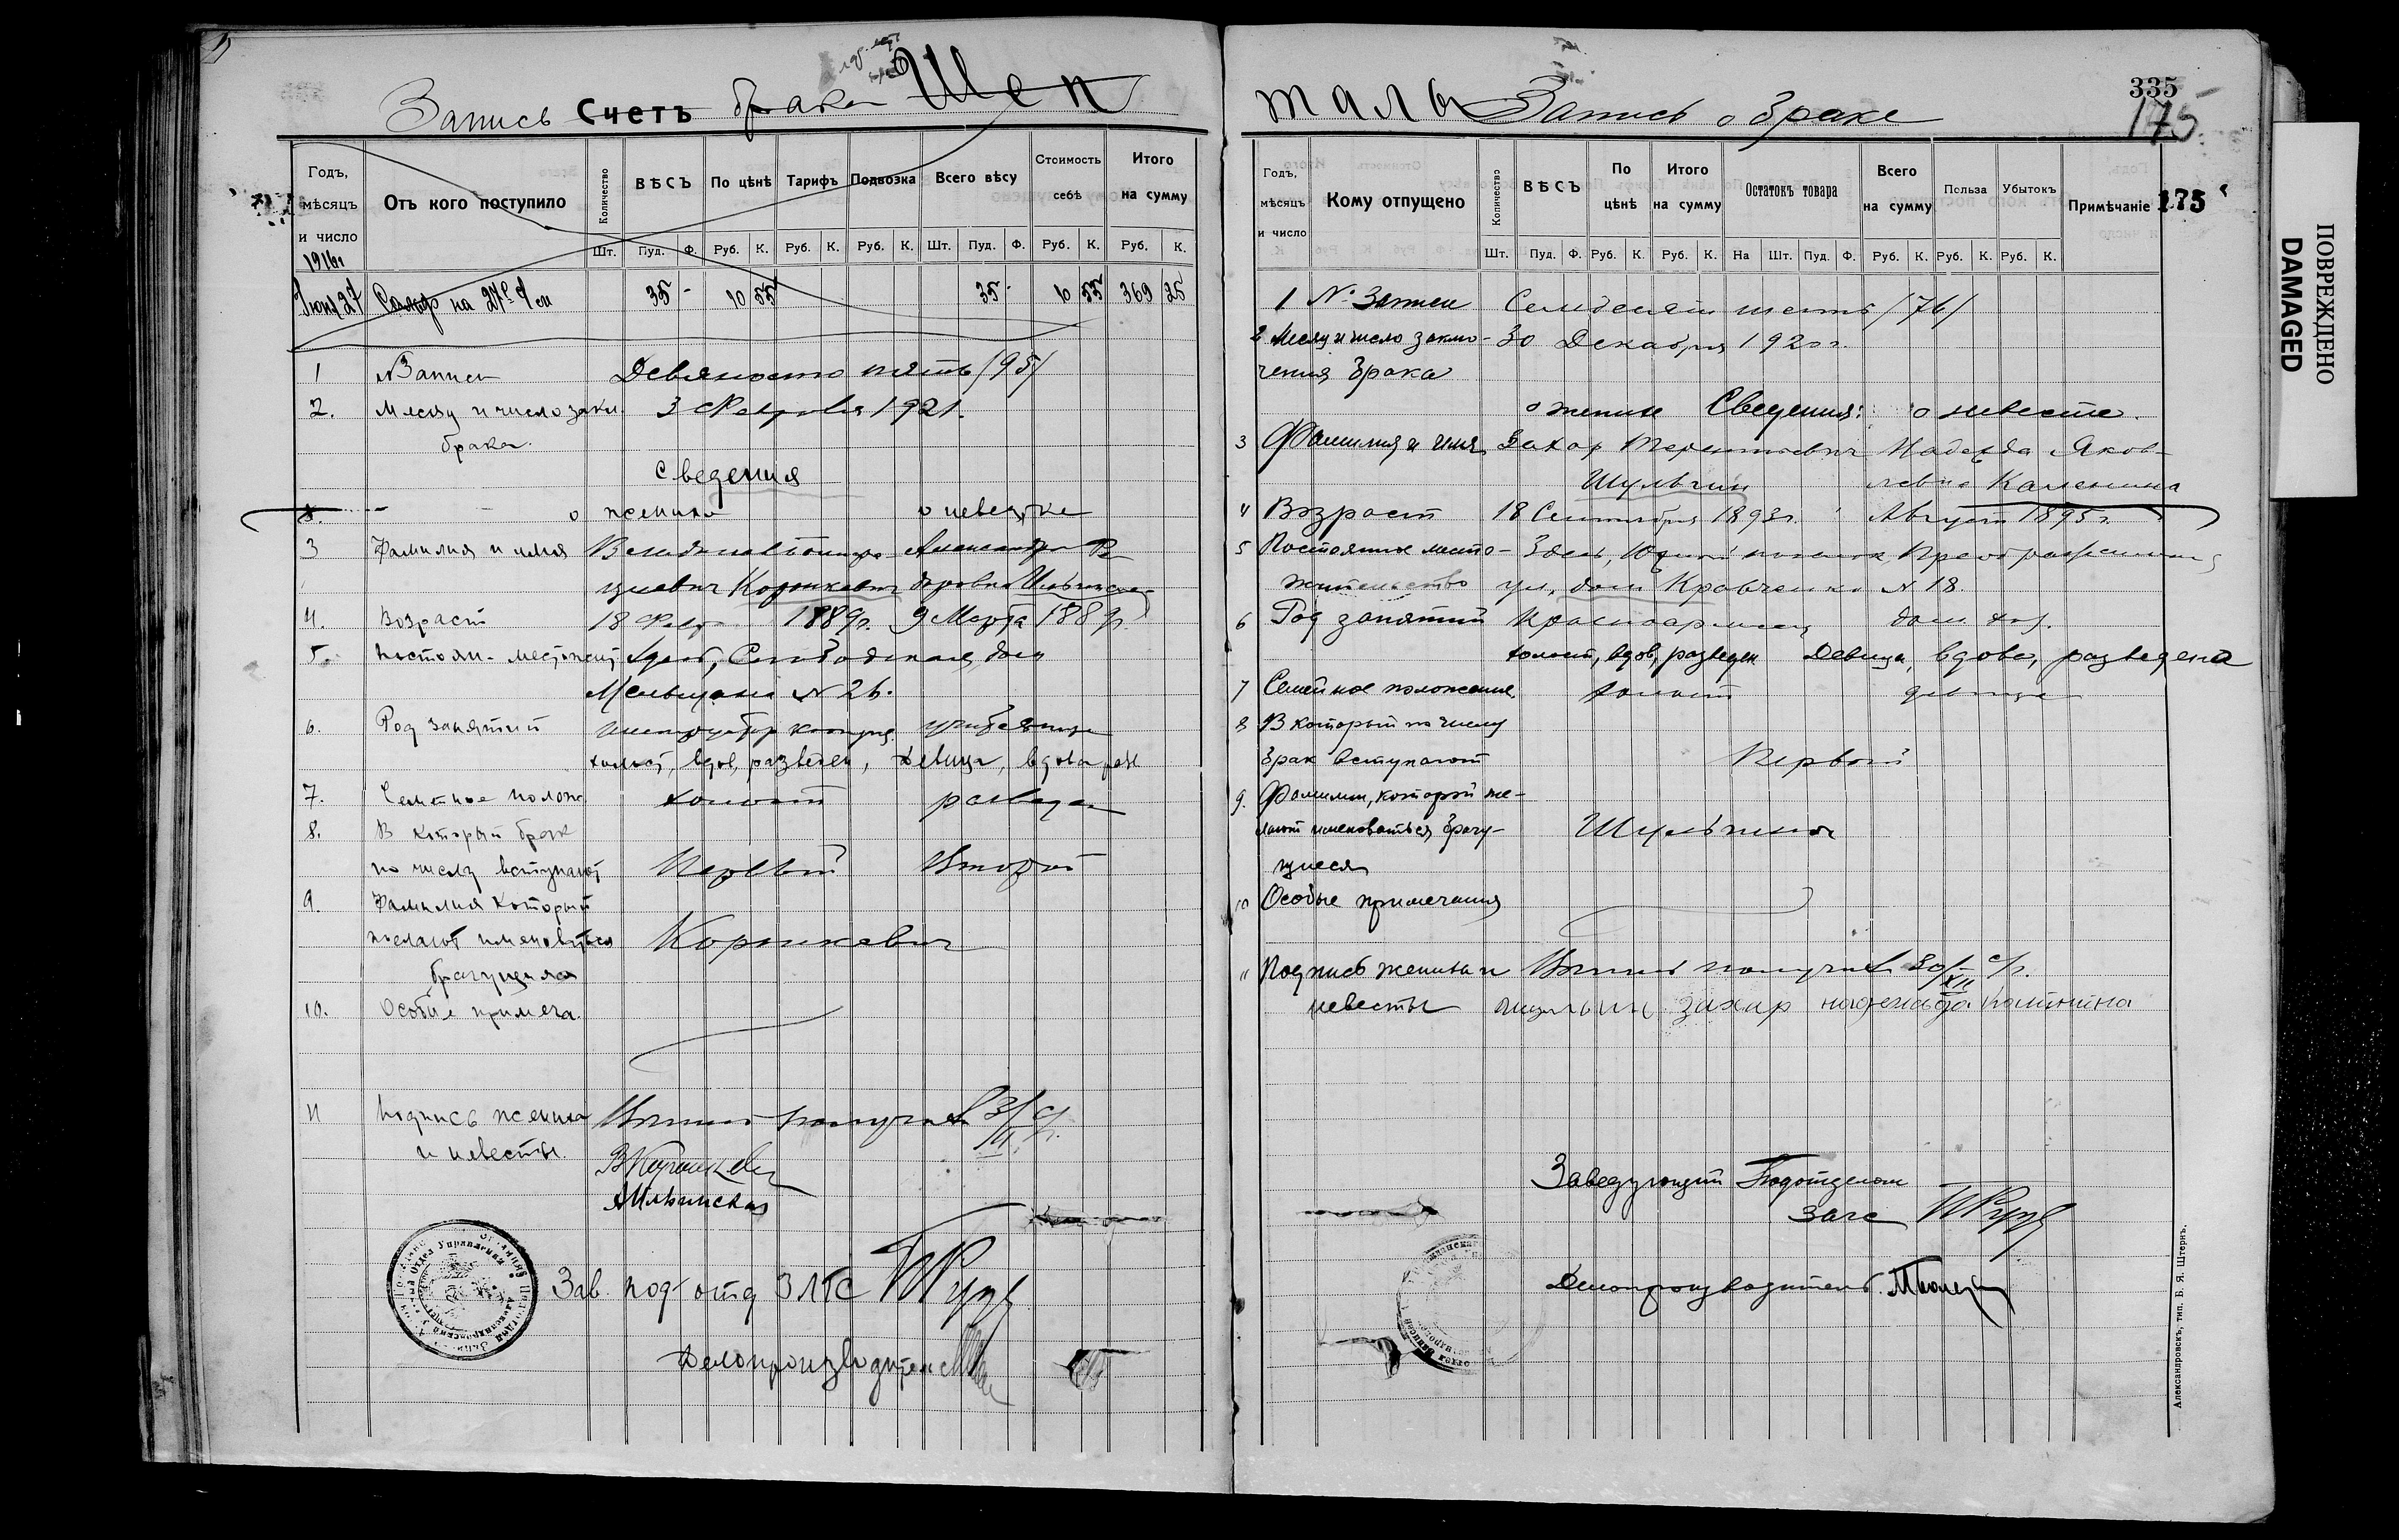 Запись Счетъ брака Шеп
Годъ, мѣсяцъ и число
Отъ кого поступило
Количество
ВѢСЪ
По цѣнѣ
Тарифъ
Подвозка
Всего вѣсу
Стоимость себѣ
Итого на сумму
Шт. Пуд. Ф. Руб. К. Руб. К. Руб. К. Шт. Пуд. Ф. Руб. К. Руб. К.
1916г
Июня 27 на 35 - 10 55 35 - 10 55 369 25
1 №Записи Девяносто пять /95/
2. Месяц и число закл. 3 Февраля 1921.
брака.
Сведения
о женихе о невестке
3 Фамилия и имя Александра
Корникевич Ильинская
4. Возраст 18 Февр 1889г. 9 Марта 188
5. Постоян. местожит Здесь, Слободская, дом
№ 26.
6. Род занятий учительница
холост, вдов, разведен, девица, вдова разв
7. Семейное полож холост разведен
8. В который брак
по числу вступают Первый Второй
9. Фамилия которой
желают именоваться Корникевич
брачущиеся
10. Особые примеча.
11 Подпись жениха Выпись получил 3/II с/г.
и невесты.
АИльинская
Зав. подотд ЗАГС
Делопроизводитель
335
175.
талы Запись о браке
Годъ, мѣсяцъ и число
Кому отпущено
Количество
ВѢСЪ
По цѣнѣ
Итого на сумму
Остатокъ товара
Всего на сумму
Польза
Убытокъ
Примѣчаніе 175
Шт. Пуд. Ф. Руб. К. Руб. К. На Шт. Пуд. Ф. Руб. К. Руб. К. Руб. К.
1 № Записи Семьдесят шесть /76/
2 Месяц и число заклю- 30 Декабря 1920г.
чения брака
о женихе Сведения: о невесте.
3 Фамилия и имя Захар Терентьевич Надежда Яков-
Шульгин левна Калинина
4 Возраст 18 Сентября 1893г. Август 1895г.
5 Постоянное место- Здесь, Южный поселок, Преображенская
жительство ул, дом Кравченко № 18.
6 Род занятий Красноармеец дом. хоз.
холост, вдов, разведен Девица, вдова, разведена
7 Семейное положение холост девица
8 В который по числу
брак вступают Первый
9. Фамилии, которой же-
лают именоваться брачу- Шульгины
щиеся
10 Особые примечания
11 Подпись жениха и Выпись получил 30/XII с/г.
невесты шульгин захар надежда Калинина
Заведующий Подотделом
Загс
Делопроизводитель.
Александровскъ, тип. Б. Я. Штернъ.
ПОВРЕЖДЕНО
DAMAGED